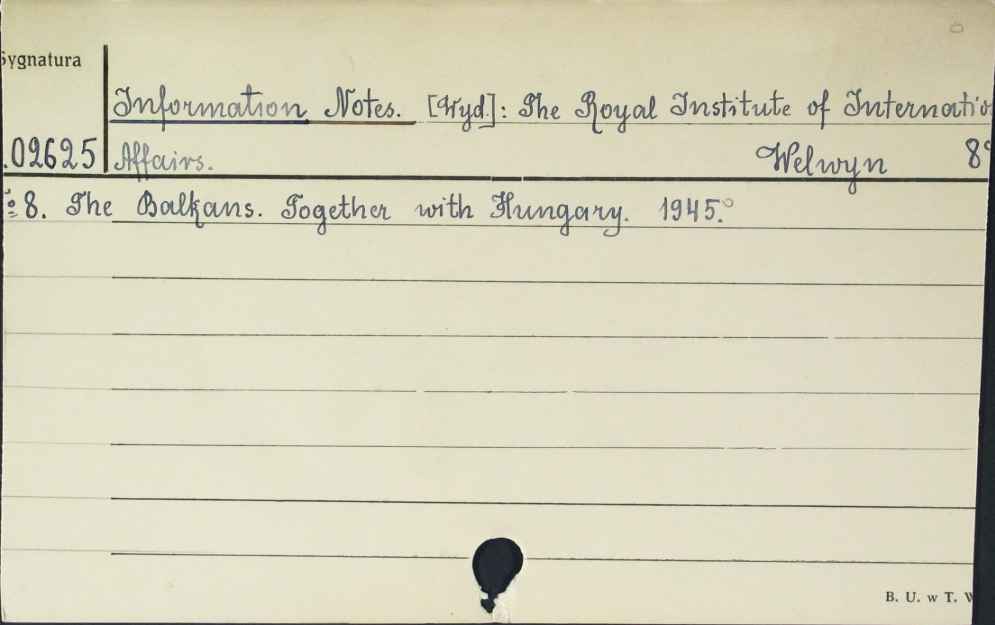 Sygnatura
Information Notes. [Wyd.]: The Royal Institute of Internatio
.02625 Affairs. Welwyn 8°
№ 8. The Balkans. Together with Hungary. 1945.
B. U. w T. W